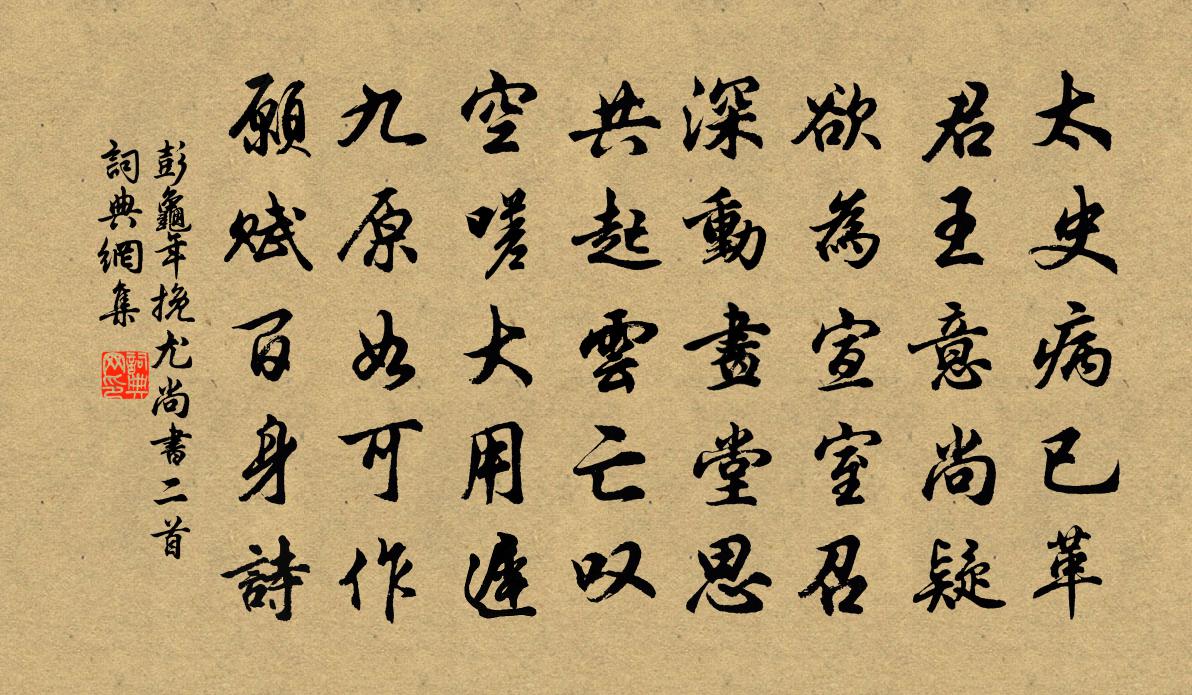 太史病已革
君王意尚疑
欲為宣室召
深動畫堂思
共起雲亡叹
空嗟大用遲
九原如可作
願賦百身詩
彭龜年挽尤尚書二首
詞典網集
詞典网印